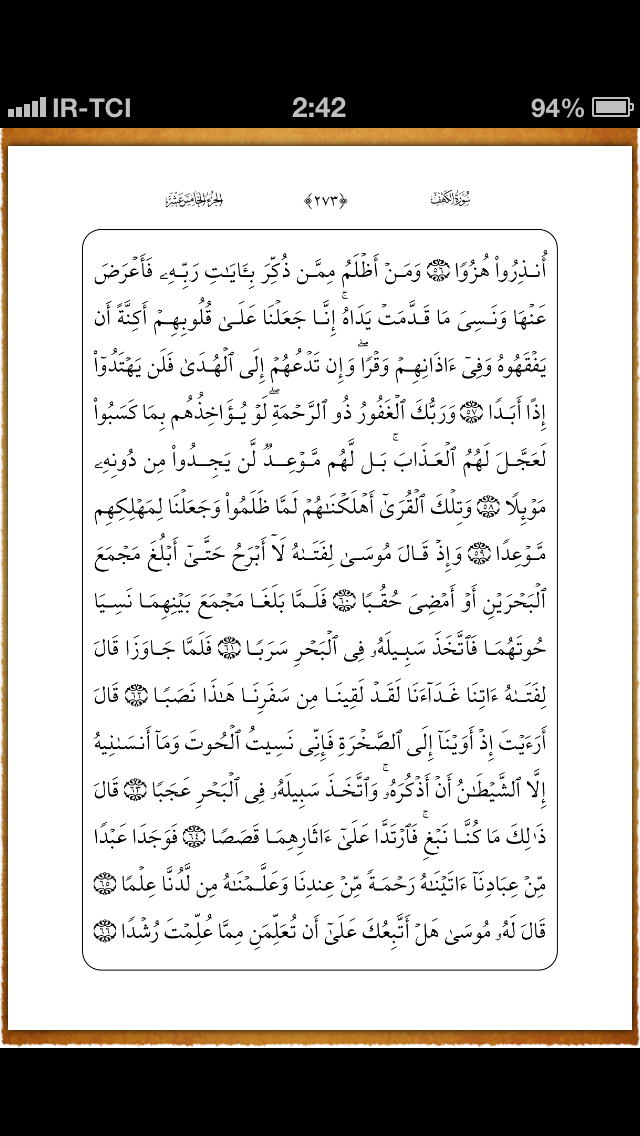 IR-TCI 2:42 94%
سُورَةُ الكَهۡفِ ﴿٢٧٣﴾ الجُزۡءُ الخَامِسَ عَشَرَ
أُنذِرُواْ هُزُوٗا ٥٦ وَمَنۡ أَظۡلَمُ مِمَّن ذُكِّرَ بِـَٔايَٰتِ رَبِّهِۦ فَأَعۡرَضَ
عَنۡهَا وَنَسِيَ مَا قَدَّمَتۡ يَدَاهُۚ إِنَّا جَعَلۡنَا عَلَىٰ قُلُوبِهِمۡ أَكِنَّةً أَن
يَفۡقَهُوهُ وَفِيٓ ءَاذَانِهِمۡ وَقۡرٗاۖ وَإِن تَدۡعُهُمۡ إِلَى ٱلۡهُدَىٰ فَلَن يَهۡتَدُوٓاْ
إِذًا أَبَدٗا ٥٧ وَرَبُّكَ ٱلۡغَفُورُ ذُو ٱلرَّحۡمَةِۖ لَوۡ يُؤَاخِذُهُم بِمَا كَسَبُواْ
لَعَجَّلَ لَهُمُ ٱلۡعَذَابَۚ بَل لَّهُم مَّوۡعِدٞ لَّن يَجِدُواْ مِن دُونِهِۦ
مَوۡئِلٗا ٥٨ وَتِلۡكَ ٱلۡقُرَىٰٓ أَهۡلَكۡنَٰهُمۡ لَمَّا ظَلَمُواْ وَجَعَلۡنَا لِمَهۡلِكِهِم
مَّوۡعِدٗا ٥٩ وَإِذۡ قَالَ مُوسَىٰ لِفَتَىٰهُ لَآ أَبۡرَحُ حَتَّىٰٓ أَبۡلُغَ مَجۡمَعَ
ٱلۡبَحۡرَيۡنِ أَوۡ أَمۡضِيَ حُقُبٗا ٦٠ فَلَمَّا بَلَغَا مَجۡمَعَ بَيۡنِهِمَا نَسِيَا
حُوتَهُمَا فَٱتَّخَذَ سَبِيلَهُۥ فِي ٱلۡبَحۡرِ سَرَبٗا ٦١ فَلَمَّا جَاوَزَا قَالَ
لِفَتَىٰهُ ءَاتِنَا غَدَآءَنَا لَقَدۡ لَقِينَا مِن سَفَرِنَا هَٰذَا نَصَبٗا ٦٢ قَالَ
أَرَءَيۡتَ إِذۡ أَوَيۡنَآ إِلَى ٱلصَّخۡرَةِ فَإِنِّي نَسِيتُ ٱلۡحُوتَ وَمَآ أَنسَىٰنِيهُ
إِلَّا ٱلشَّيۡطَٰنُ أَنۡ أَذۡكُرَهُۥۚ وَٱتَّخَذَ سَبِيلَهُۥ فِي ٱلۡبَحۡرِ عَجَبٗا ٦٣ قَالَ
ذَٰلِكَ مَا كُنَّا نَبۡغِۚ فَٱرۡتَدَّا عَلَىٰٓ ءَاثَارِهِمَا قَصَصٗا ٦٤ فَوَجَدَا عَبۡدٗا
مِّنۡ عِبَادِنَآ ءَاتَيۡنَٰهُ رَحۡمَةٗ مِّنۡ عِندِنَا وَعَلَّمۡنَٰهُ مِن لَّدُنَّا عِلۡمٗا ٦٥
قَالَ لَهُۥ مُوسَىٰ هَلۡ أَتَّبِعُكَ عَلَىٰٓ أَن تُعَلِّمَنِ مِمَّا عُلِّمۡتَ رُشۡدٗا ٦٦